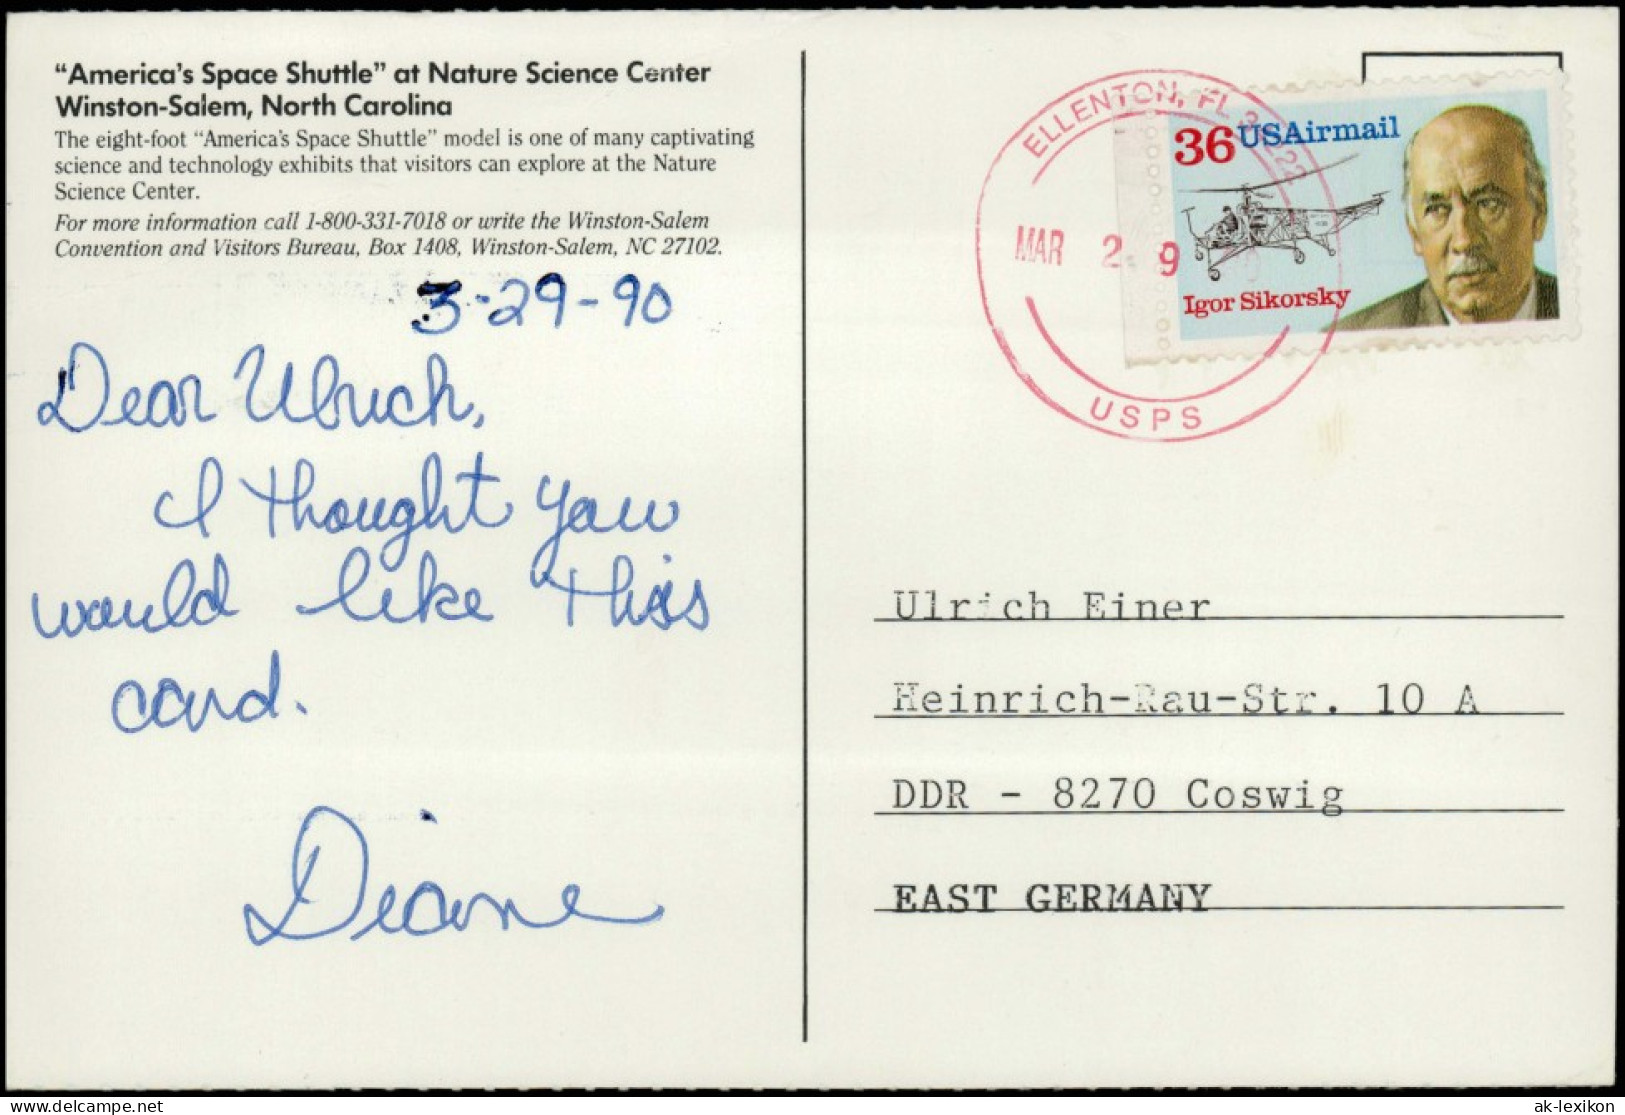 “America's Space Shuttle” at Nature Science Center
Winston-Salem, North Carolina
The eight-foot “America's Space Shuttle” model is one of many captivating
science and technology exhibits that visitors can explore at the Nature
Science Center.
For more information call 1-800-331-7018 or write the Winston-Salem
Convention and Visitors Bureau, Box 1408, Winston-Salem, NC 27102.
3-29-90
Dear Ulrich,
I thought you
would like this
card.
Diane
ELLENTON, FL
MAR 29
USPS
36 USAirmail
Igor Sikorsky
Ulrich Einer
Heinrich-Rau-Str. 10 A
DDR - 8270 Coswig
EAST GERMANY
www.delcampe.net
ak-lexikon